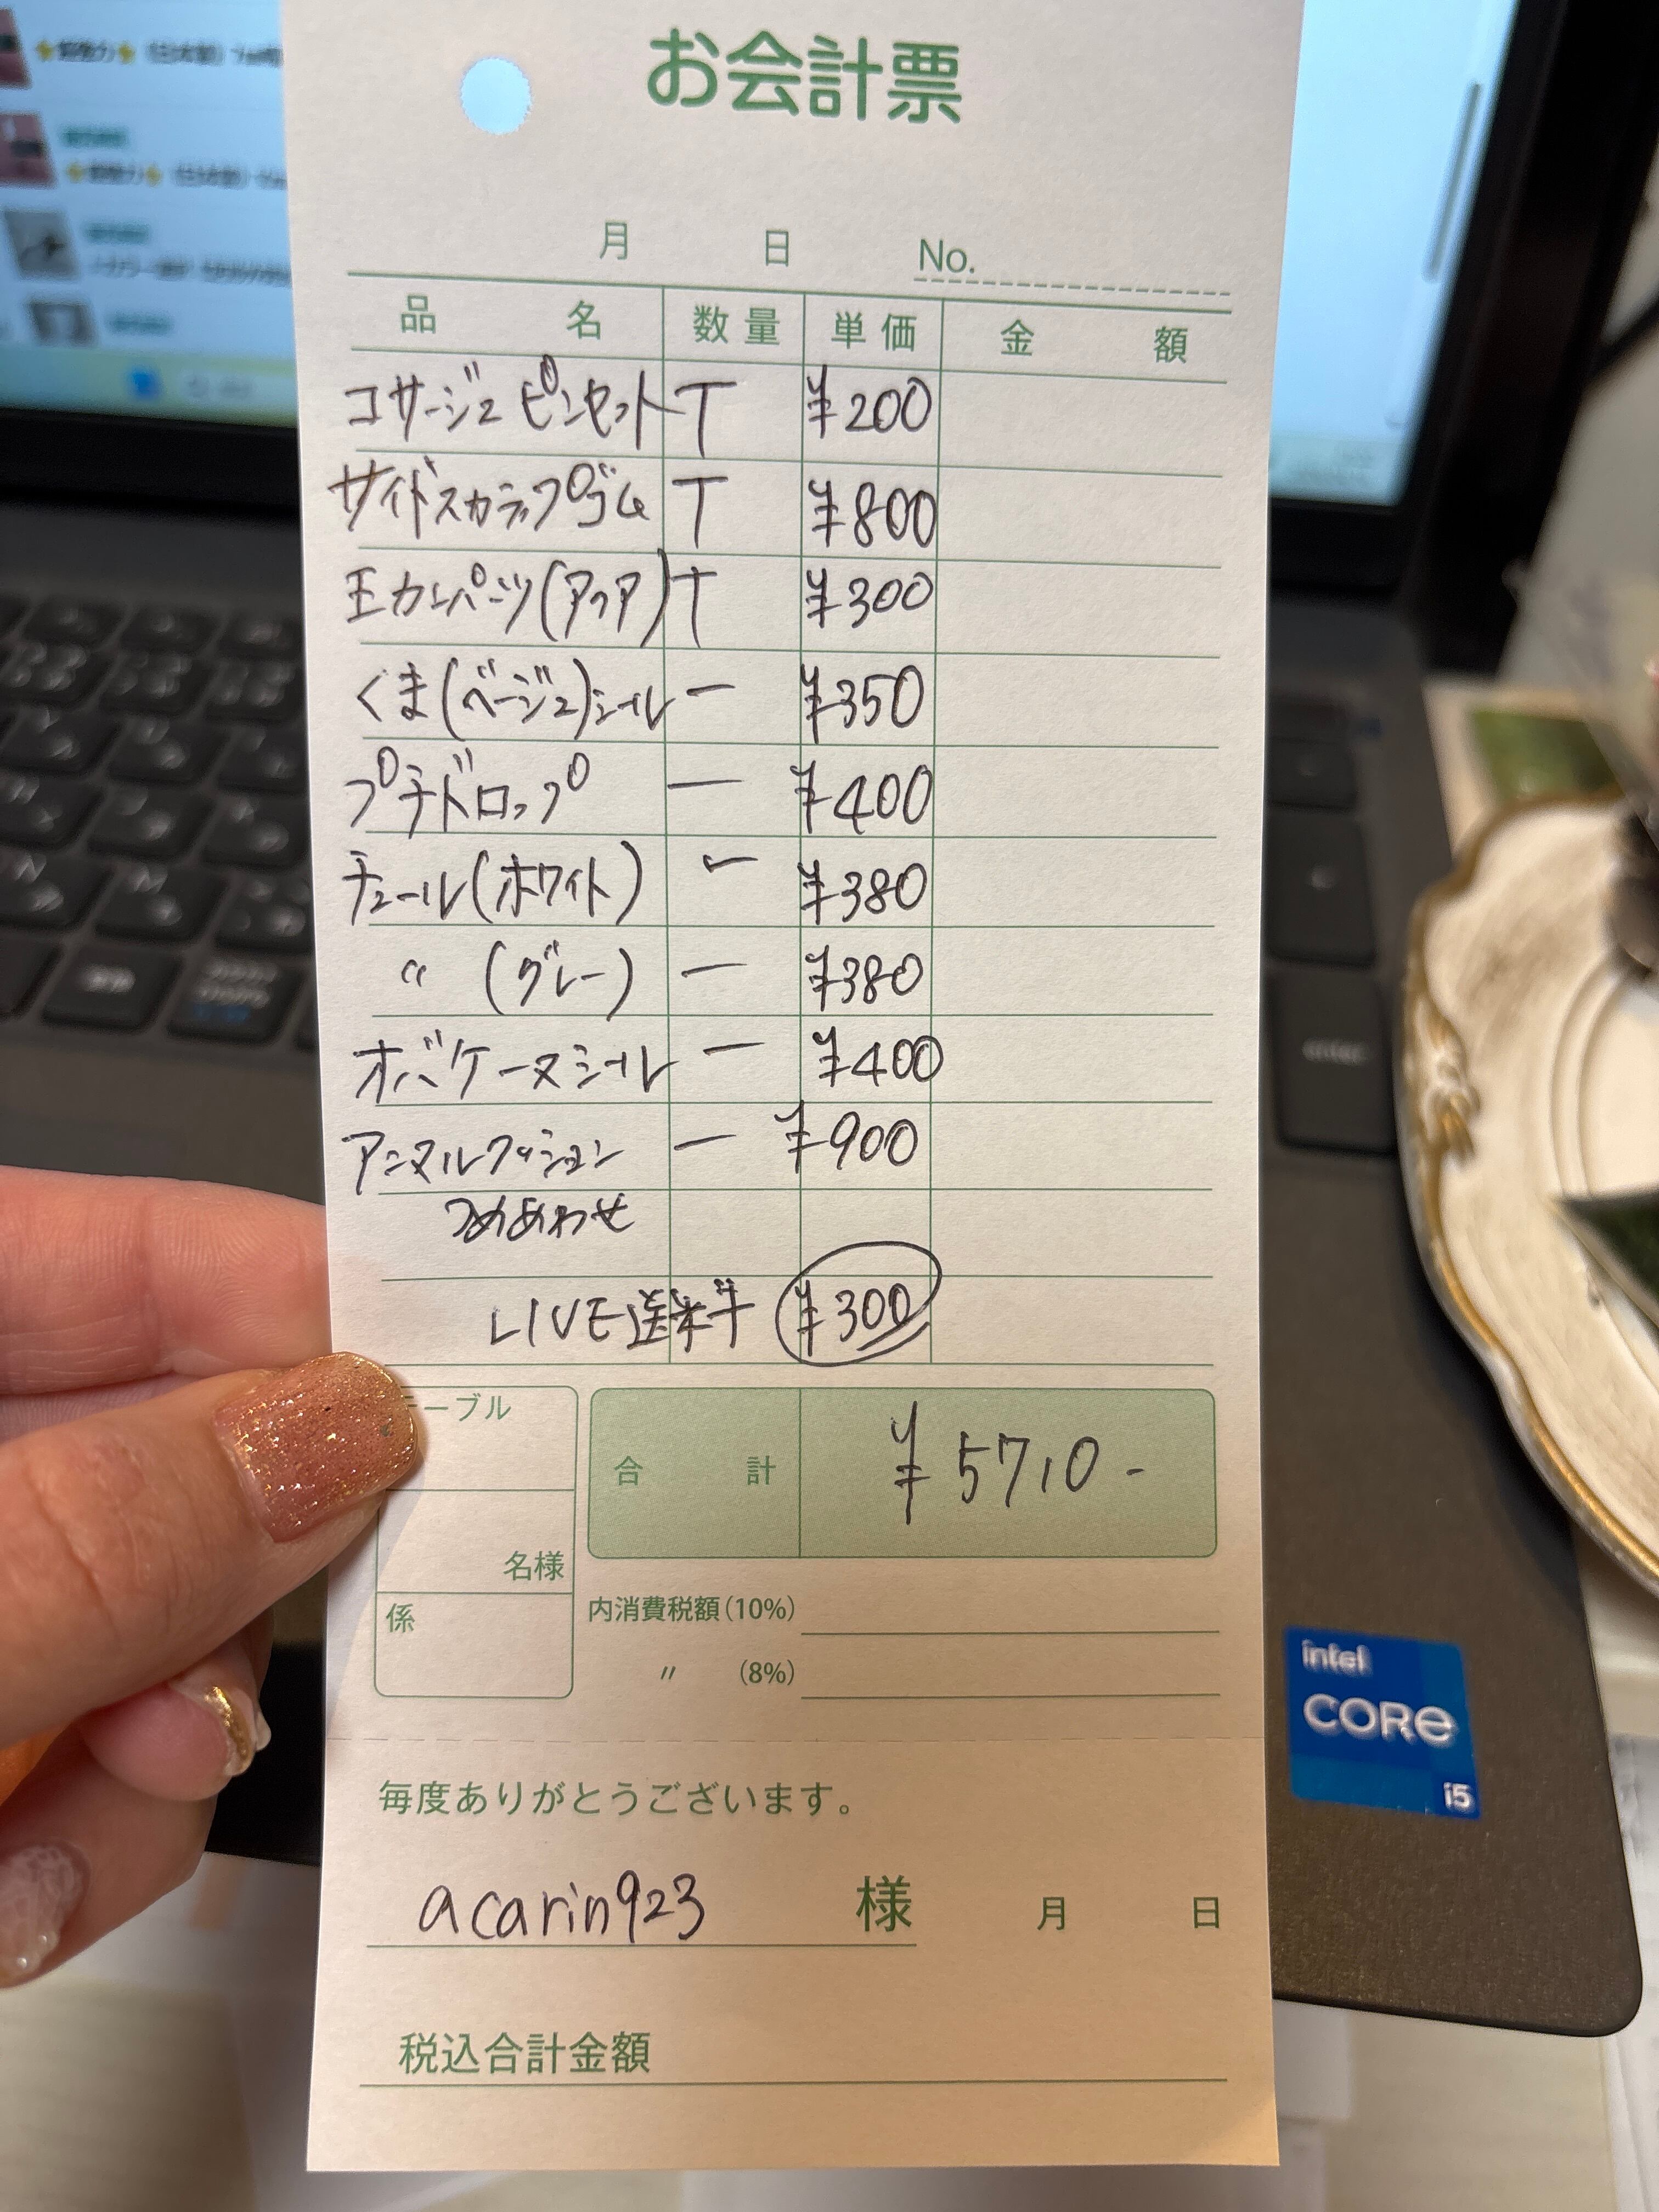 お会計票
月 日 No.
品 名 数量 単価 金 額
コサージュピンセット T ¥200
サイドスカラップゴム T ¥800
王カンパーツ(アクア) T ¥300
くま(ベージュ)シール 一 ¥350
プチドロップ 一 ¥400
チュール(ホワイト) 一 ¥380
〃 (グレー) 一 ¥380
オバケーヌシール 一 ¥400
アニマルクッション 一 ¥900
つめあわせ
LIVE送料 ¥300
ーブル
合 計 ¥5710-
名様
係
内消費税額(10%)
〃 (8%)
毎度ありがとうございます。
acarin923 様 月 日
税込合計金額
intel
CORE
i5
enter